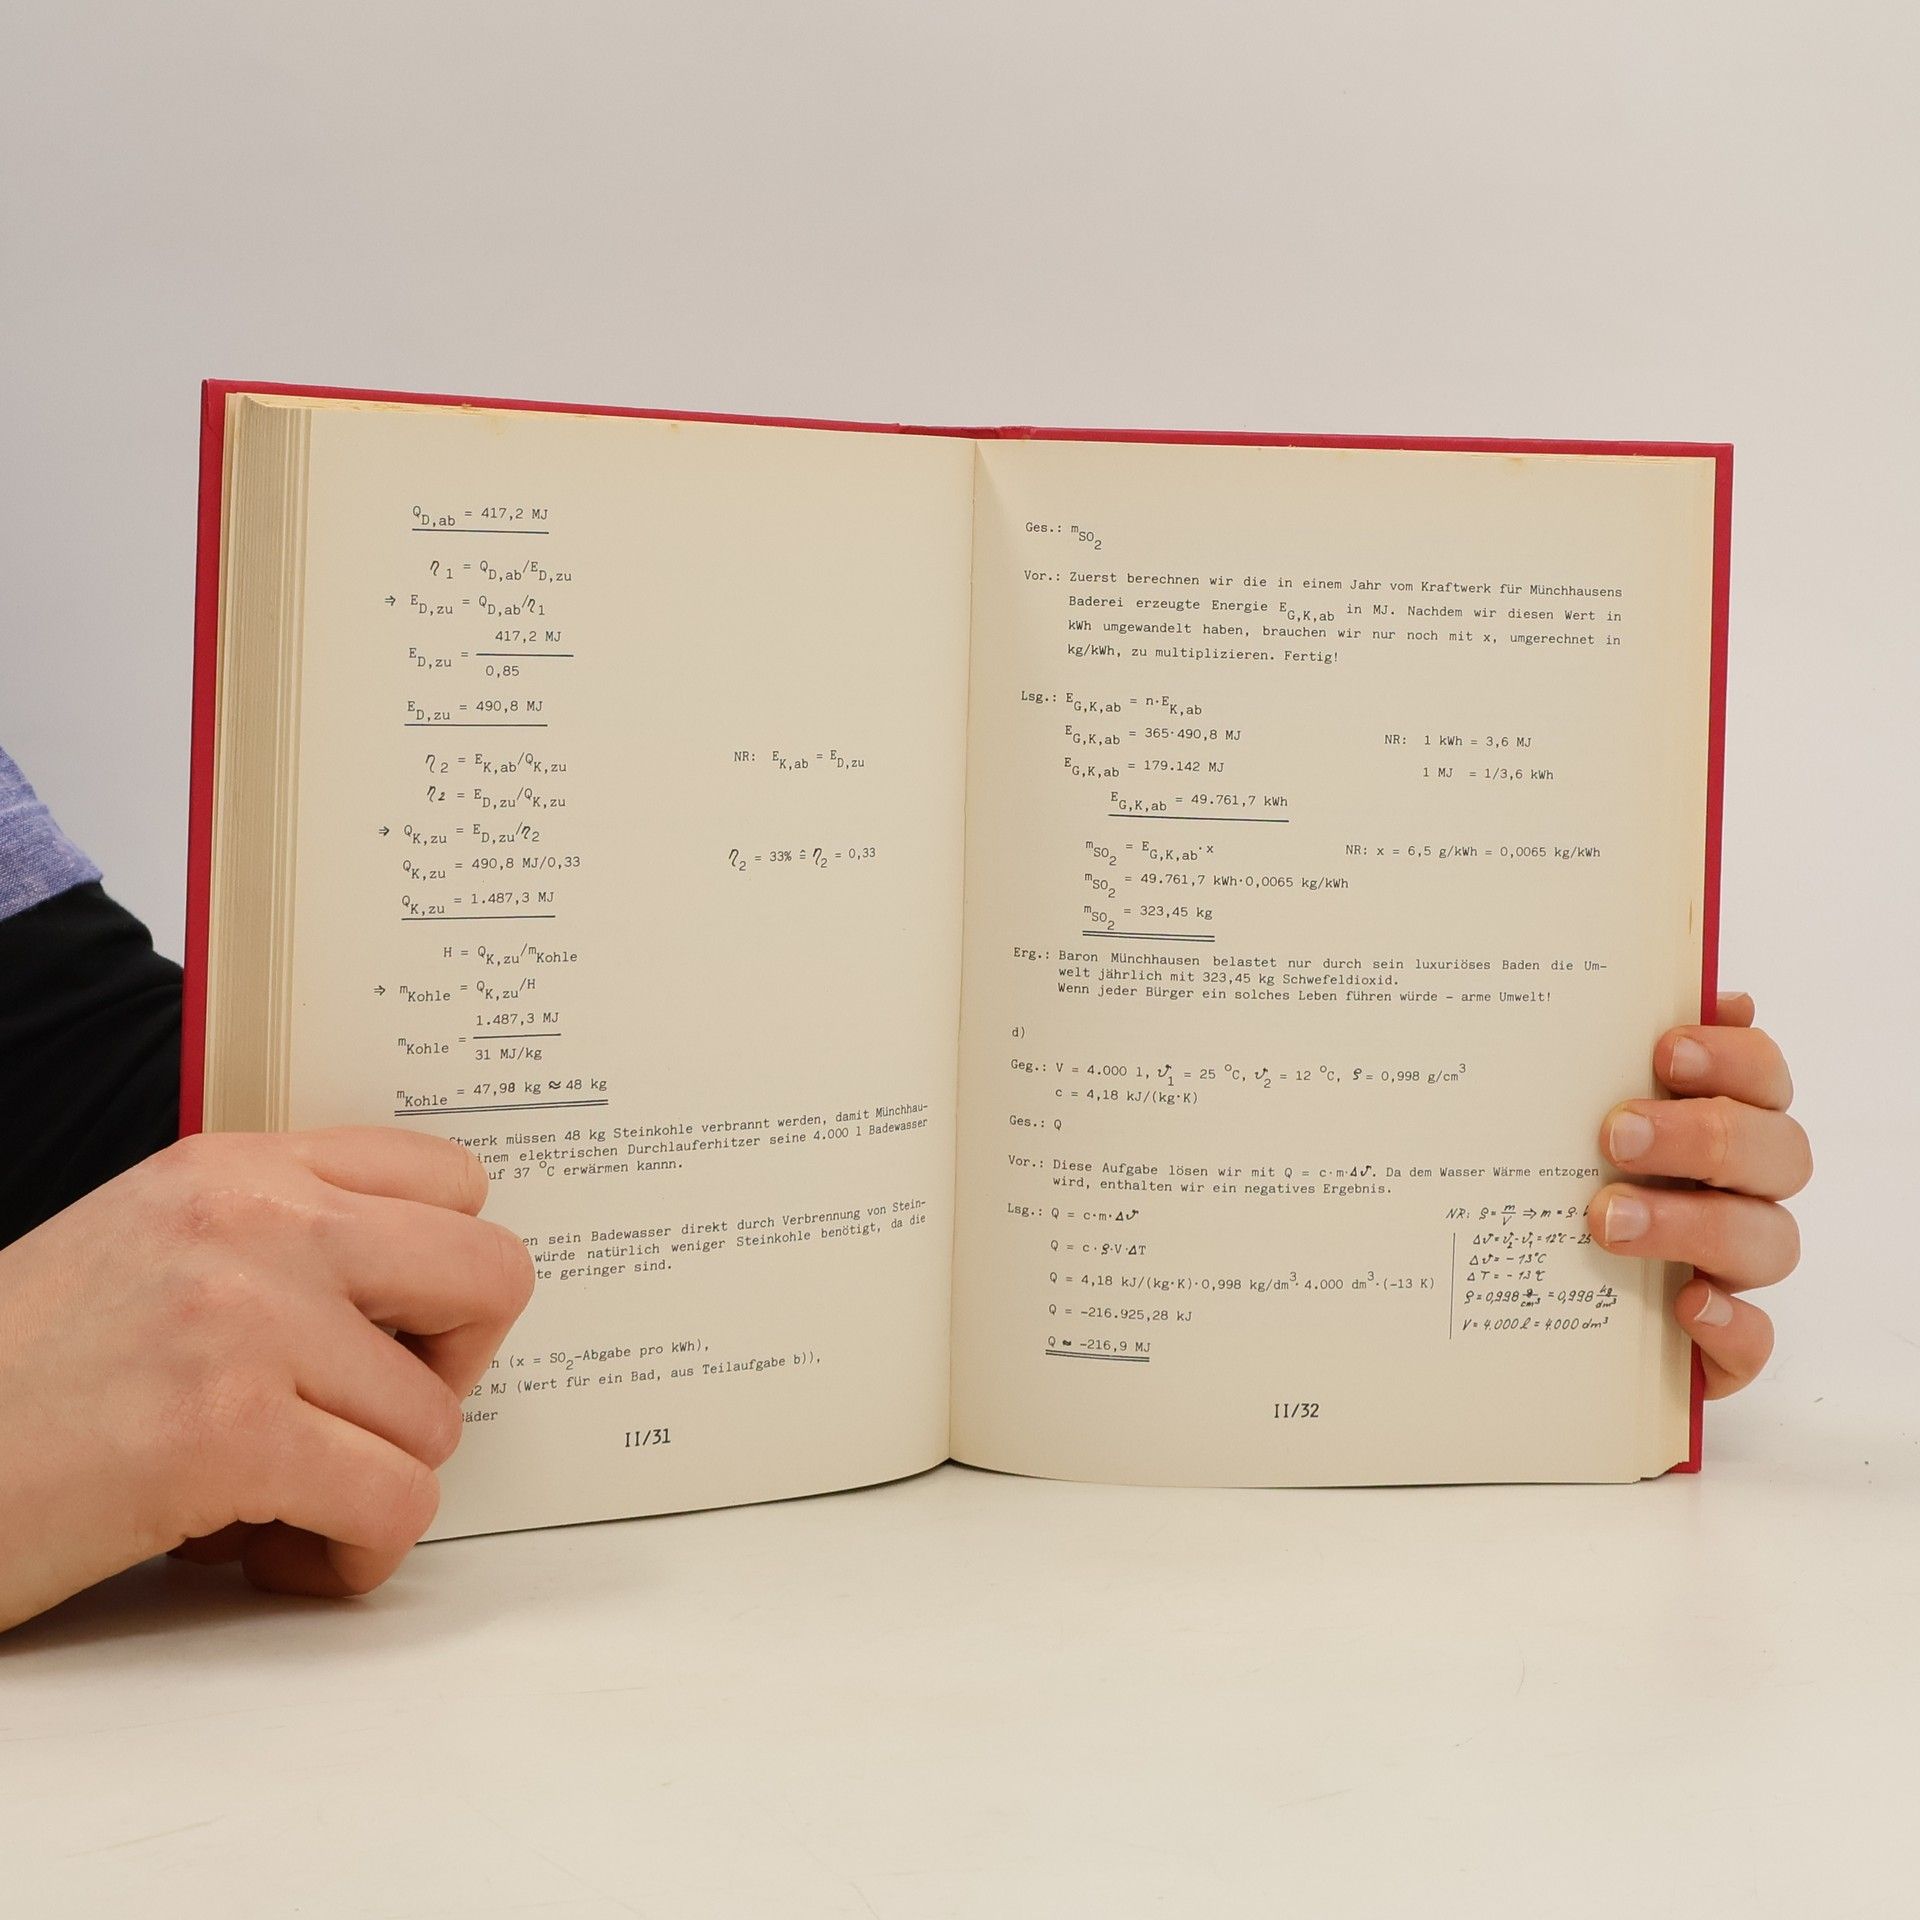 Q_D,ab = 417,2 MJ
η_1 = Q_D,ab/E_D,zu
⇒ E_D,zu = Q_D,ab/η_1
417,2 MJ
E_D,zu =
0,85
E_D,zu = 490,8 MJ
η_2 = E_K,ab/Q_K,zu NR: E_K,ab = E_D,zu
η_2 = E_D,zu/Q_K,zu
⇒ Q_K,zu = E_D,zu/η_2
Q_K,zu = 490,8 MJ/0,33 η_2 = 33% ≙ η_2 = 0,33
Q_K,zu = 1.487,3 MJ
H = Q_K,zu/m_Kohle
⇒ m_Kohle = Q_K,zu/H
1.487,3 MJ
m_Kohle =
31 MJ/kg
m_Kohle = 47,98 kg ≈ 48 kg
müssen 48 kg Steinkohle verbrannt werden, damit Münchhau-
elektrischen Durchlauferhitzer seine 4.000 l Badewasser
37 °C erwärmen kannn.
sein Badewasser direkt durch Verbrennung von Stein-
würde natürlich weniger Steinkohle benötigt, da die
geringer sind.
(x = SO_2-Abgabe pro kWh),
MJ (Wert für ein Bad, aus Teilaufgabe b)),
II/31
Ges.: m_SO_2
Vor.: Zuerst berechnen wir die in einem Jahr vom Kraftwerk für Münchhausens
Baderei erzeugte Energie E_G,K,ab in MJ. Nachdem wir diesen Wert in
kWh umgewandelt haben, brauchen wir nur noch mit x, umgerechnet in
kg/kWh, zu multiplizieren. Fertig!
Lsg.: E_G,K,ab = n·E_K,ab
E_G,K,ab = 365·490,8 MJ NR: 1 kWh = 3,6 MJ
E_G,K,ab = 179.142 MJ 1 MJ = 1/3,6 kWh
E_G,K,ab = 49.761,7 kWh
m_SO_2 = E_G,K,ab·x NR: x = 6,5 g/kWh = 0,0065 kg/kWh
m_SO_2 = 49.761,7 kWh·0,0065 kg/kWh
m_SO_2 = 323,45 kg
Erg.: Baron Münchhausen belastet nur durch sein luxuriöses Baden die Um-
welt jährlich mit 323,45 kg Schwefeldioxid.
Wenn jeder Bürger ein solches Leben führen würde - arme Umwelt!
d)
Geg.: V = 4.000 l, ϑ_1 = 25 °C, ϑ_2 = 12 °C, ϱ = 0,998 g/cm³
c = 4,18 kJ/(kg·K)
Ges.: Q
Vor.: Diese Aufgabe lösen wir mit Q = c·m·Δϑ. Da dem Wasser Wärme entzogen
wird, enthalten wir ein negatives Ergebnis.
Lsg.: Q = c·m·Δϑ NR: ϱ = m/V ⇒ m = ϱ·
Q = c·ϱ·V·ΔT Δϑ = ϑ_2-ϑ_1 = 12°C - 25
Δϑ = - 13°C
Q = 4,18 kJ/(kg·K)·0,998 kg/dm³·4.000 dm³·(-13 K) ΔT = - 13 °C
Q = -216.925,28 kJ ϱ = 0,998 g/cm³ = 0,998 kg/dm³
V = 4.000 l = 4.000 dm³
Q ≈ -216,9 MJ
II/32